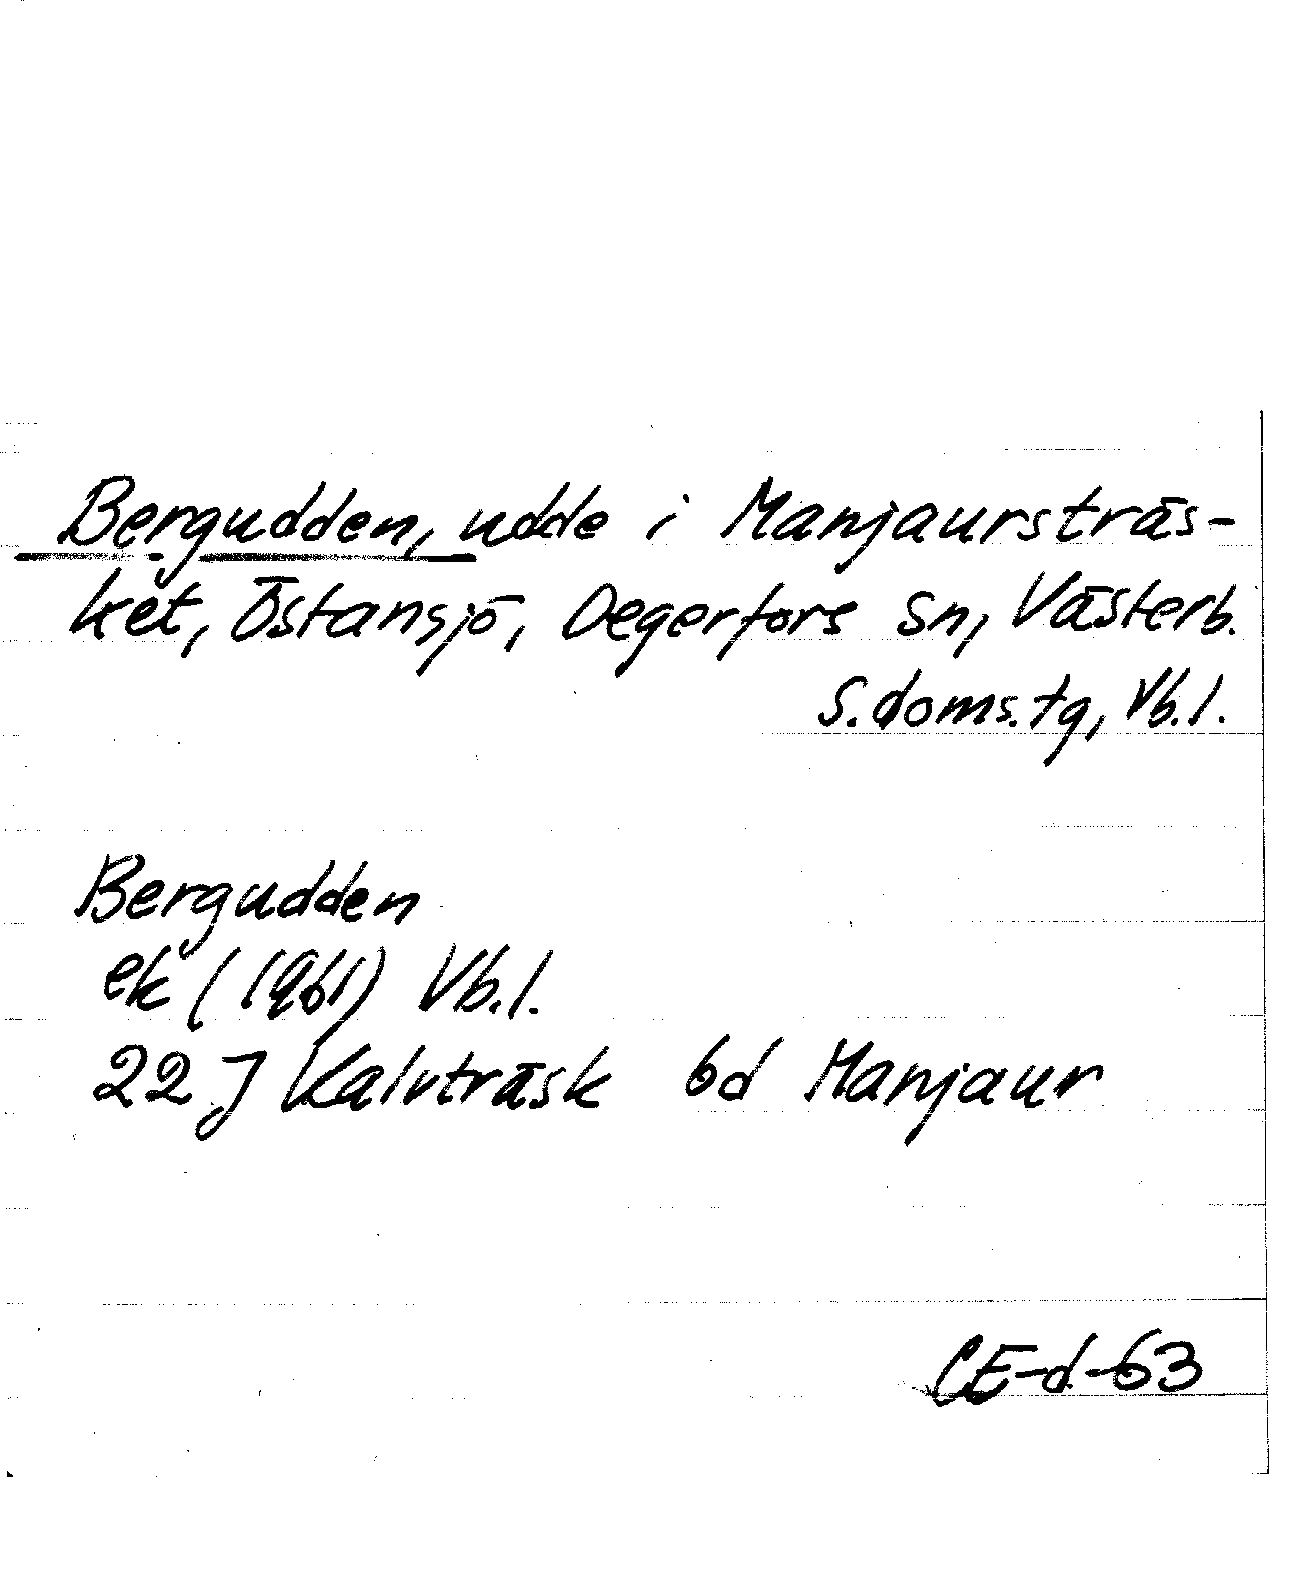 Bergudden, udde i Manjaursträs-
ket, Östansjö, Degerfors sn, Västerb.
s. doms. tg, Vb. l.
Bergudden
ek (1961) Vb. l.
22 J Kalvträsk 6d Manjaur
CE-d-63